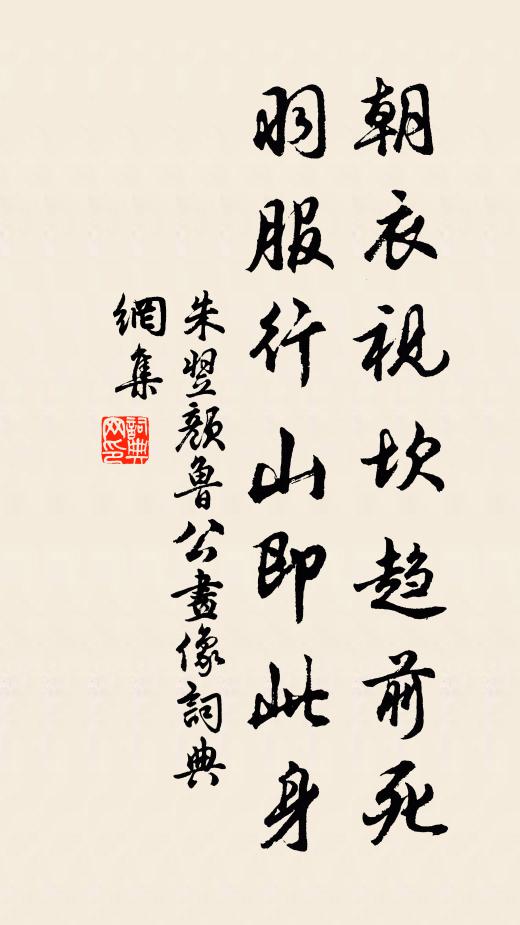 朝衣視坎趋前死
羽服行山即此身
朱翌顔魯公畫像詞典
網集
詞典网印